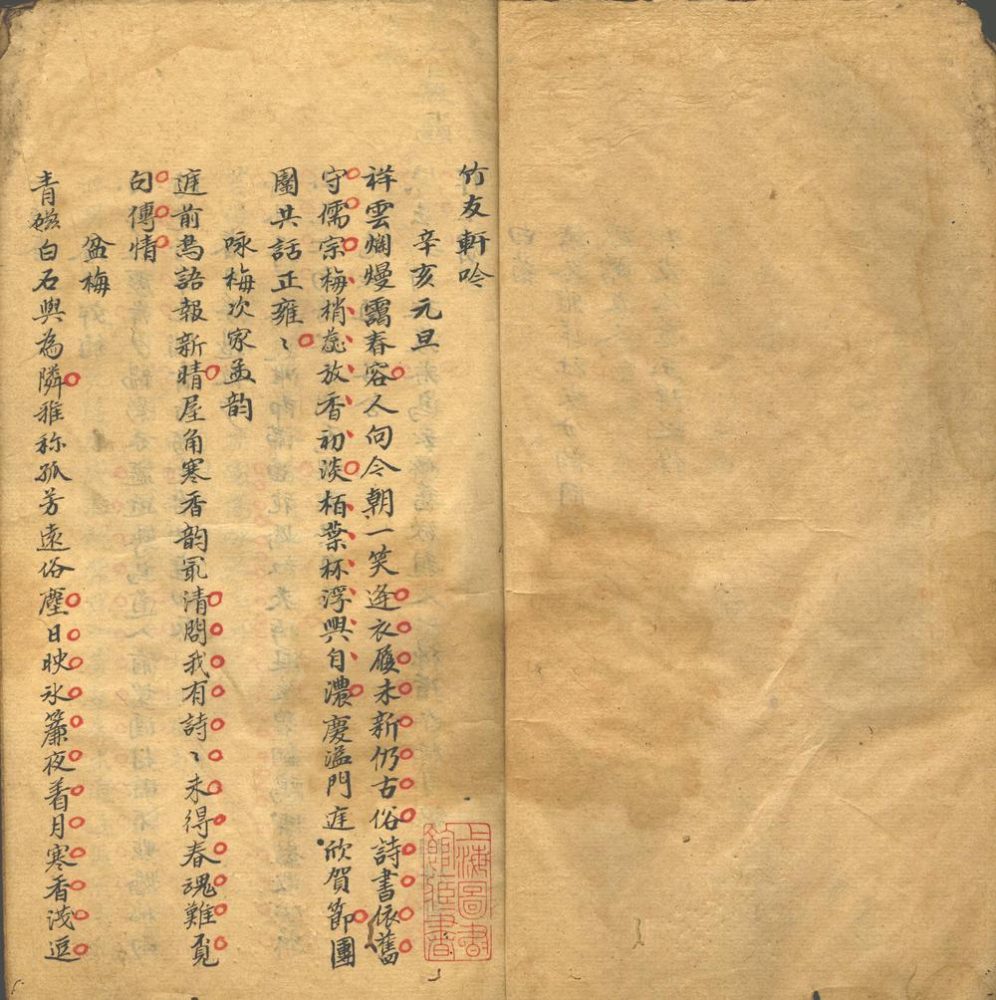 竹友軒吟
辛亥元旦
祥雲爛熳靄春容人向今朝一笑逢衣履未新仍古俗詩書依舊
守儒宗梅梢蕊放香初淡栢葉杯浮興自濃慶溢門庭欣賀節團
圞共話正雍〻
咏梅次家孟韵
庭前鳥語報新晴屋角寒香韵冣清問我有詩〻未得春魂難覓
句傳情
盆梅
青磁白石與為隣雅称孤芳遠俗塵日映氷簾夜看月寒香淺逗
上海圖書
館藏書